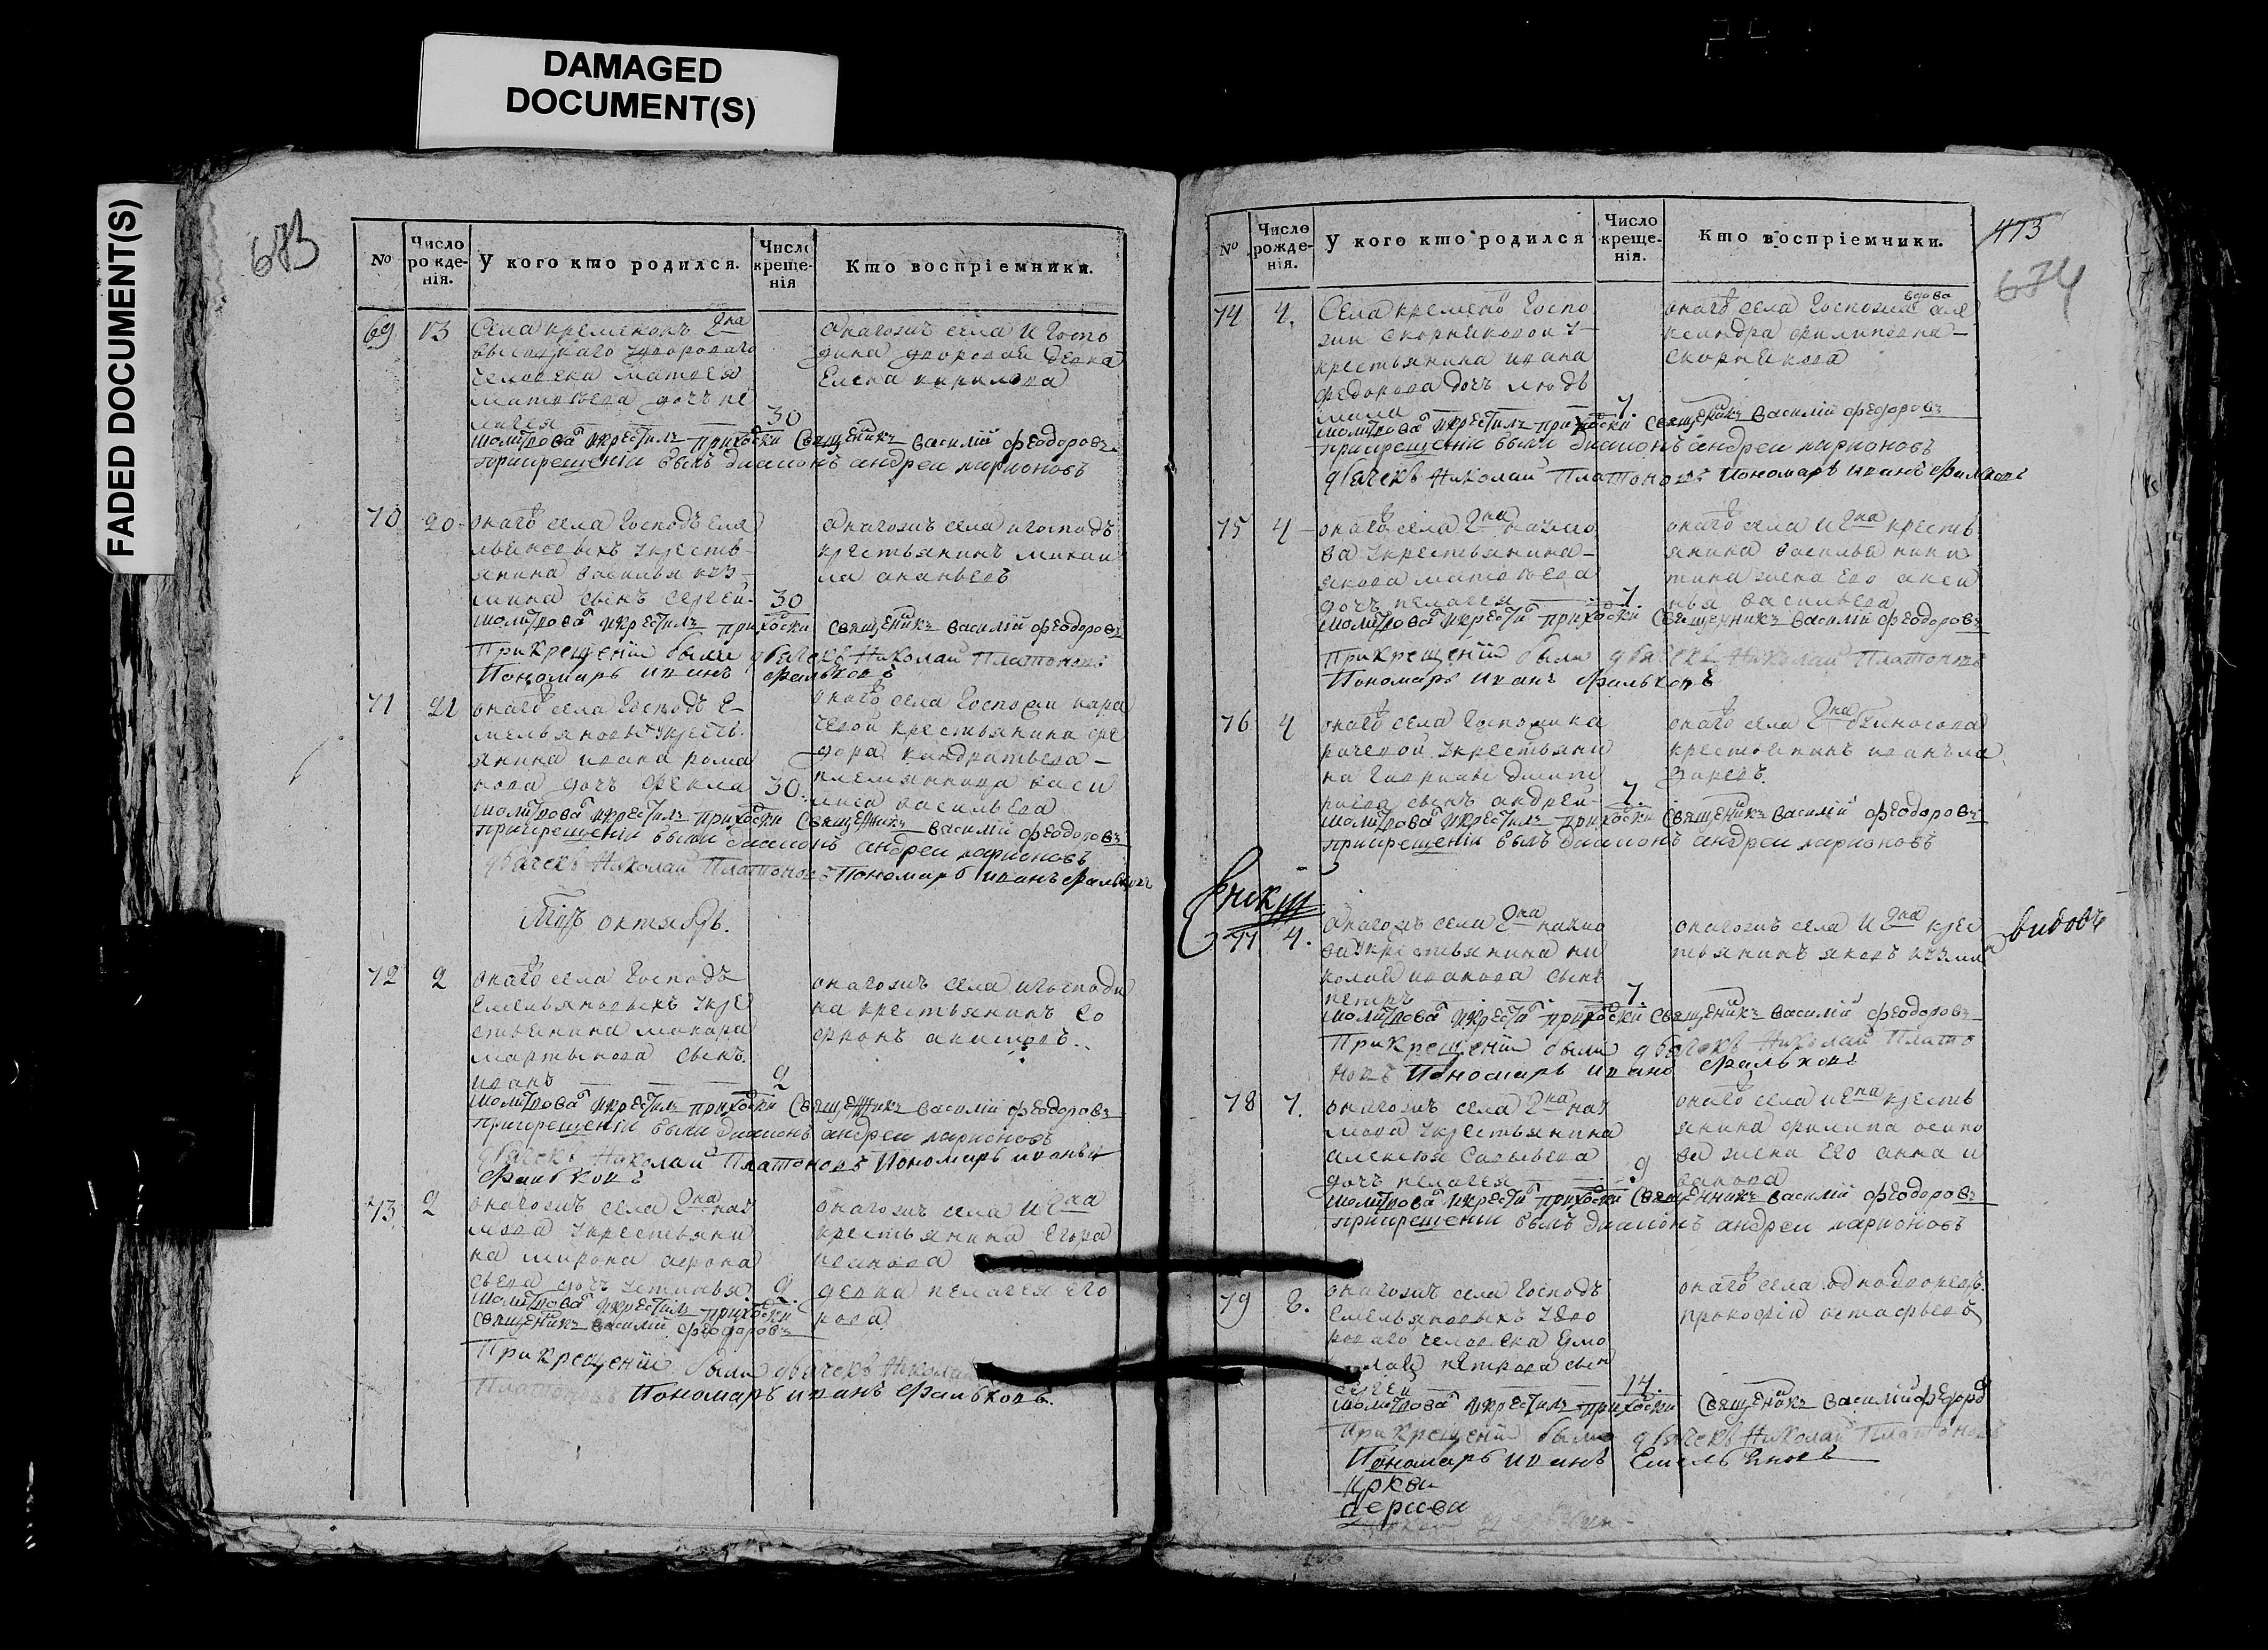 DAMAGED
DOCUMENT(S)
FADED DOCUMENT(S)
673
№
Число рожденія.
У кого кто родился.
Число крещенія
Кто воспріемники.
69 13 Села кременокъ Гна
двороваго
человека матвея
матвеева дочь пе
лагея 30
онагожъ села и Госпо
дина дворовая девка
Елена кирилова
молитвовалъ и крестилъ приходски Священикъ Василий Феодоровъ
при крещении былъ диаконъ андреи ларионовъ
70 20 онаго села Господъ Емя
льяновыхъ укресть
янина василья куз
мина сынъ сергей 30
онагожъ села и господъ
крестьянинъ михаи
ла ананьевъ
молитвовалъ и крестилъ приходски священикъ василий феодоровъ
При крещении были дьячекъ Николай Платоновъ
Пономарь иванъ Фальковъ
71 21 онаго села Господъ Е
мельяновыхъ укресть
янина ивана рома
нова дочь Фекла 30.
онаго села Госпожи кара
чевой крестьянина фе
дора кандратьева
племянница васи
лиса васильева
молитвовалъ и крестилъ приходски Священикъ василий феодоровъ
при крещении были диаконъ андреи ларионовъ
дьячекъ Николай Платоновъ Пономарь иванъ Фальковъ
Мцъ октябрь.
72 2 онаго села Господъ
Емельяновыхъ укре
стьянина макара
мартынова сынъ
иванъ 2
онагожъ села и господи
на крестьянинъ со
фронъ акимовъ.
молитвовалъ и крестилъ приходски Священикъ василий феодоровъ
при крещении были диаконъ андреи ларионовъ
дьячекъ Николай Платоновъ Пономарь иванъ
Фальковъ
73 2 онагожъ села Гна нах
мова укрестьяни
на мирона афона
сьева дочь устинья 2.
онагожъ села и Гна
крестьянина Егора
иванова
девка пелагея его
рова
молитвовалъ и крестилъ приходски
священикъ василий феодоровъ
При крещении были дьячекъ Николай
Платоновъ Пономарь иванъ Фальковъ.
473
674
№
Число рожденія.
У кого кто родился
Число крещенія.
Кто воспріемники.
74 4. Села кременъ Госпо
жи Скорняковой у
крестьянина ивана
федорова дочь людь
мила 7.
онаго села Госпожа вдова але
ксандра филиповна
Скорнякова
молитвовалъ и крестилъ приходски Священикъ Василий феодоровъ
при крещении были диаконъ андреи ларионовъ
дьячекъ Николай Платоновъ Пономарь иванъ Фальковъ
75 4 онаго села Гна нахмо
ва укрестьянина
якова матвеева
дочь пелагея 7.
онаго села и Гна кресть
янина василья ники
тина жена Его акси
нья васильева
молитвовалъ и крести приходски Священникъ василий феодоровъ
При крещении были дьячекъ Николай Платоновъ
Пономарь иванъ Фальковъ
76 4 онаго села Госпожи ка
рачевой укрестьяни
на Гаврила дмит
риева сынъ андрей 7.
онаго села Гна
крестьянинъ иванъ ла
заревъ.
молитвовалъ и крестилъ приходски Священикъ Василий феодоровъ
при крещении былъ диаконъ андреи ларионовъ
77 4. онагожъ села Гна нахмо
ва укрестьянина ни
колай иванова сынъ
петръ 7.
онагожъ села и Гна крес
тьянинъ яковъ кузми
молитвовалъ и крести приходски Священикъ василий феодоровъ
При крещении были дьячекъ Николай Плато
новъ Пономарь иванъ Фальковъ
78 7. онагожъ села Гна нах
мова укрестьянина
алексея Савельева
дочь пелагея 9
онаго села и Гна кресть
янина филипа осипо
ва жена Его анна и
ванова
молитвовалъ и крести приходски Священникъ василий феодоровъ
при крещении былъ диаконъ андреи ларионовъ
79 8. онагожъ села Господъ
Емельяновыхъ удво
роваго человека Ермо
лая петрова сын
сергеи 14.
онаго села однодворецъ
прокофий остафьевъ
молитвовалъ и крестилъ приходски Священикъ Василий Федоро
При крещении были дьячекъ Николай Платоновъ
Пономарь иванъ Емельяновъ